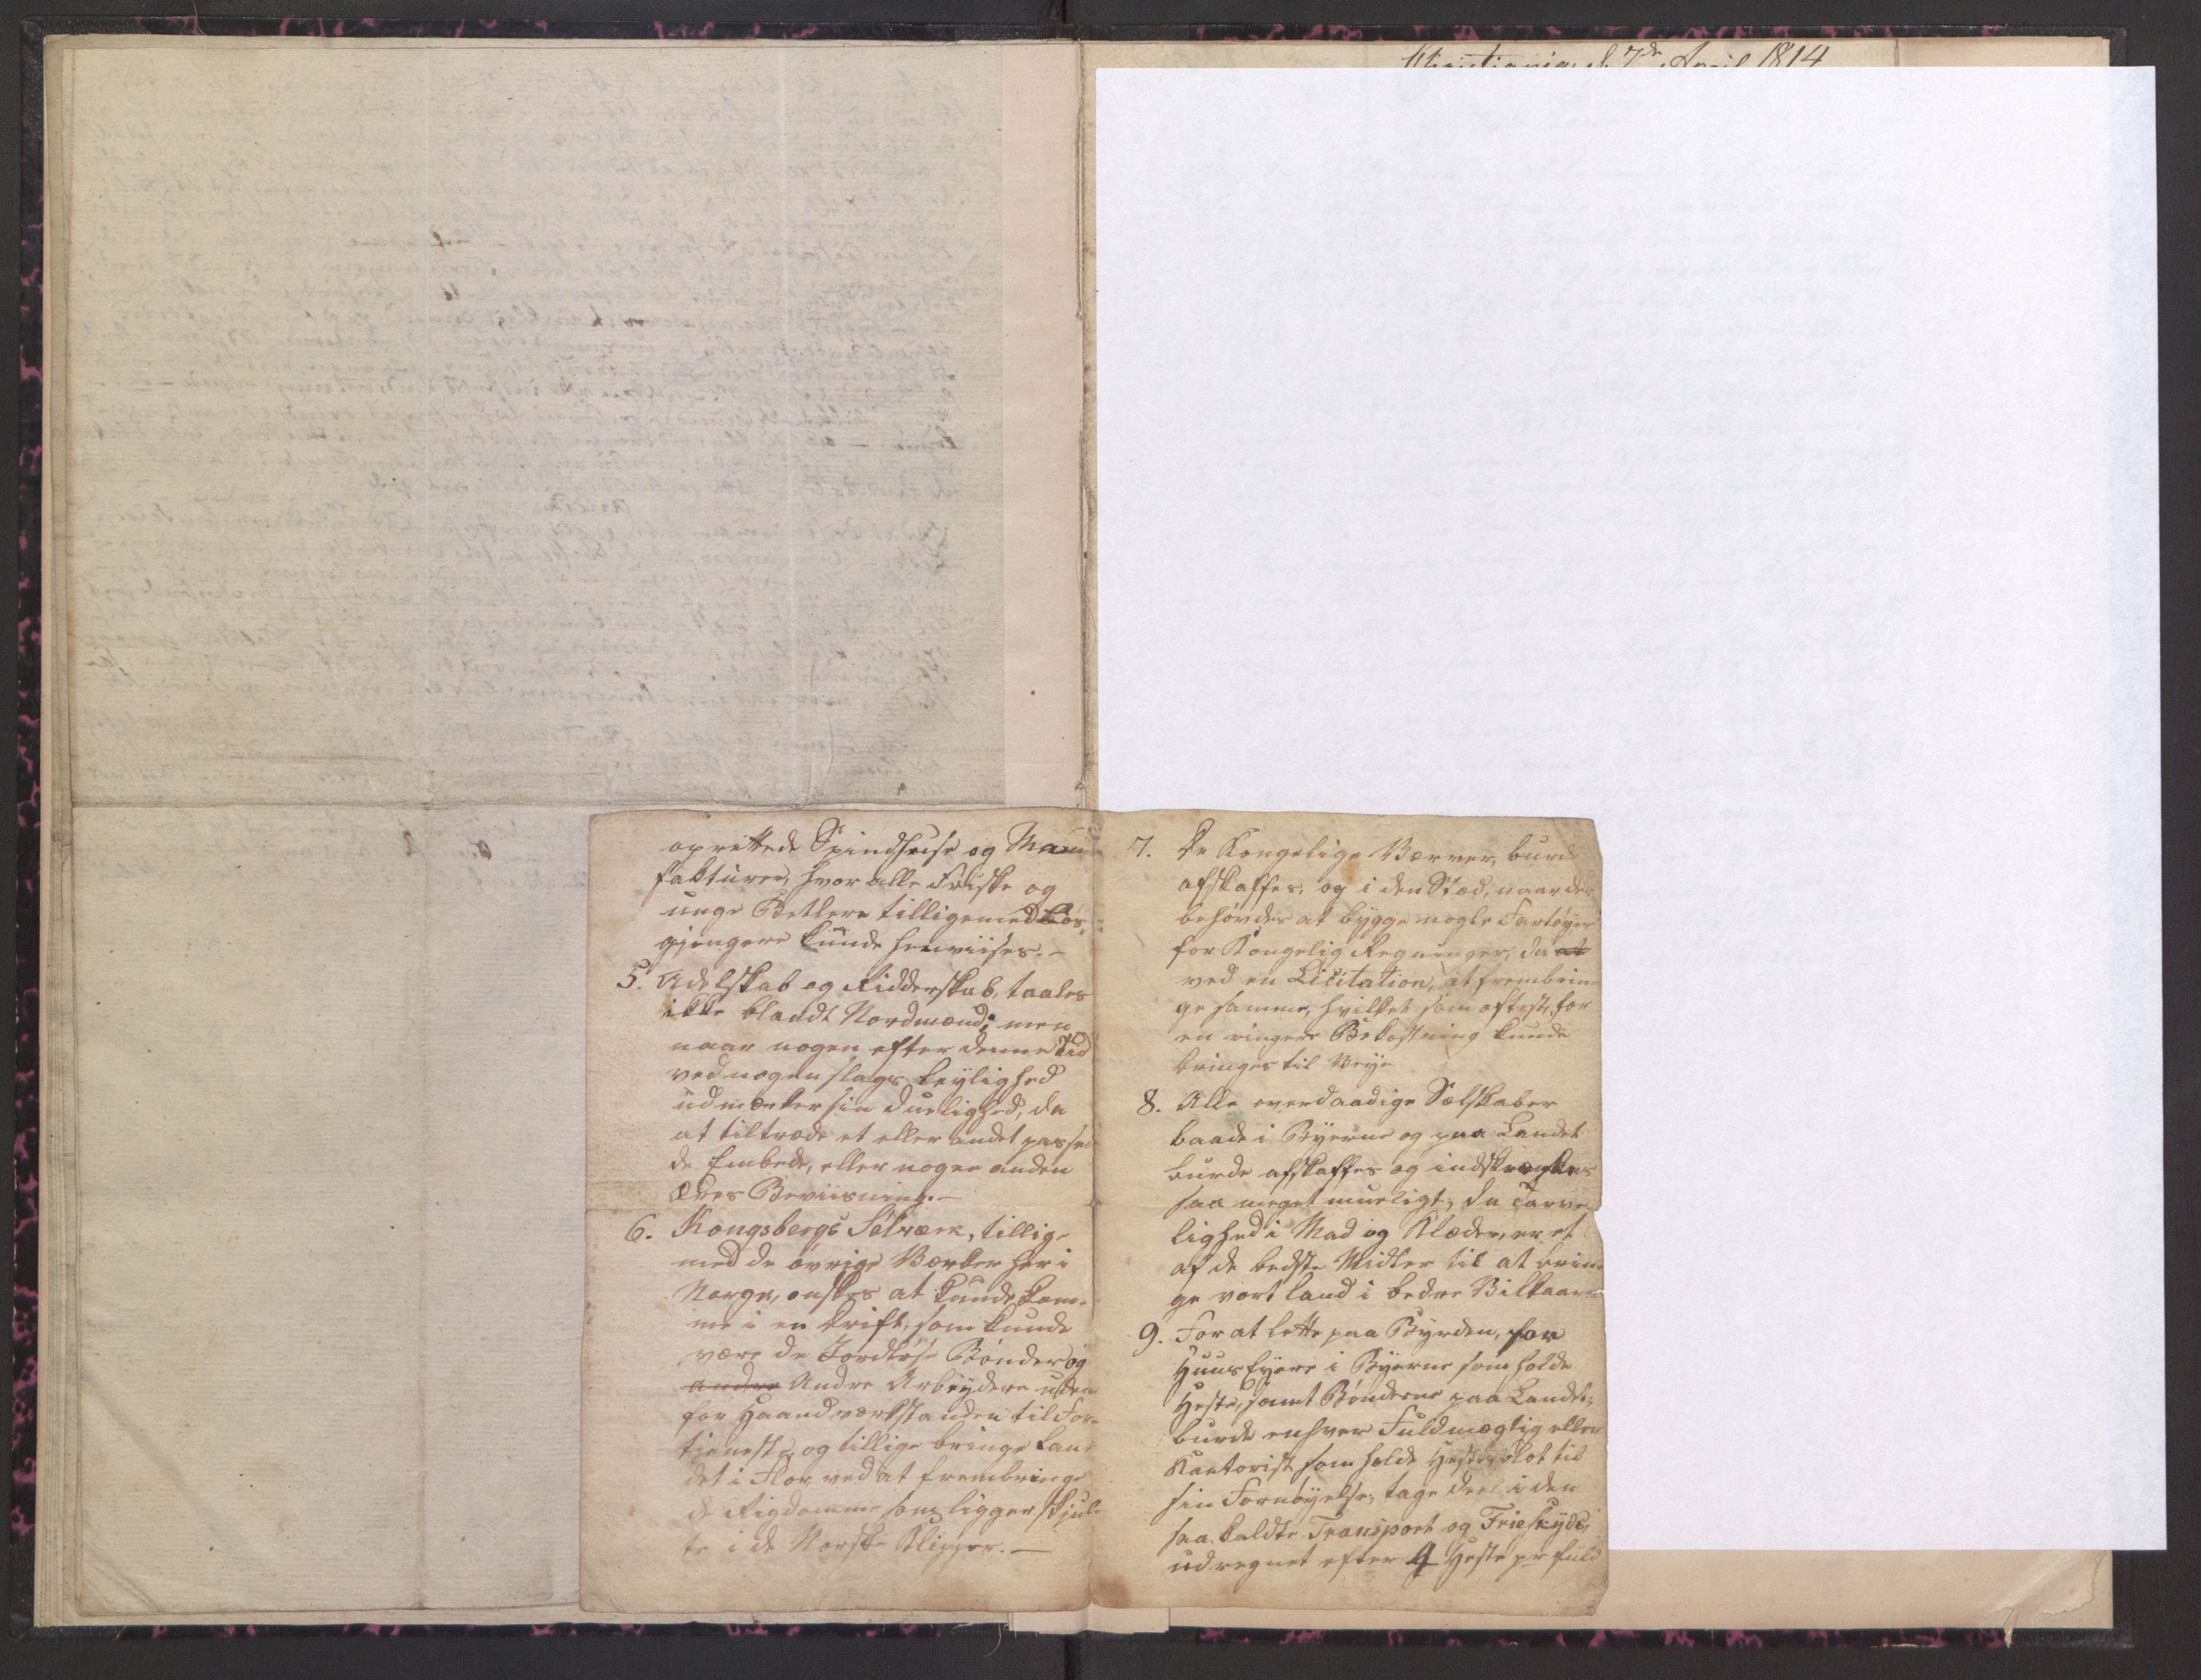 Christiania d. 7de April 1814
oprettede Spindhuse og Manu
fakturer, hvor alle Friske og
unge Betlere tilligemed Løs,
gjengere kunde henviises.-
5. Adelskab og Ridderskab, taales
ikke blandt Nordmænd; men
naar nogen efter denne Tid
ved nogen slags Leylighed
udmærker sin Duelighed, da
at tiltræde et eller andet passen
de Embede, eller nogen anden
Æres Beviisning.-
6. Kongsbergs Sølværk, tillige
med de øvrige Værker her i
Norge, ønskes at kunde kom-
me i en Drift, som kunde
være de Jordløse Bønder og
andre Andre Arbeydere uden
for Haandværkstanden til For-
tieneste, og tillige bringe Lan
det i Flor ved at frembringe
de Rigdomme som ligger skjul
te i de Norske Klipper.-
7. De Kongelige Værver, burde
afskaffes, og i den Stæd, naar der
behøvdes at bygge nogle Fartøyer
for Kongelig Regninger, da at
ved en Licitation, at frembrin
ge samme, hvilket som oftest, for
en ringere Bekostning kunde
bringes til Veye
8. Alle overdaadige Selskaber
baade i Byerne og paa Landet
burde afskaffes og indskrænkes
saa meget mueligt; da Tarve
lighed i Mad og Klæder, er et
af de bedste Midler til at brin
ge vort land i bedre Vilkaar
9. For at lette paa Byrden, for
Huus Eyere i Byerne som holde
Heste, samt Bønderne paa Landet;
burde enhver Fuldmægtig eller
Kontorist som holde Heste, blot til
sin Fornøyelse, tage Deel i den
saa kaldte Transport og Frieskyds,
udregnet efter 4 Heste pr fuld